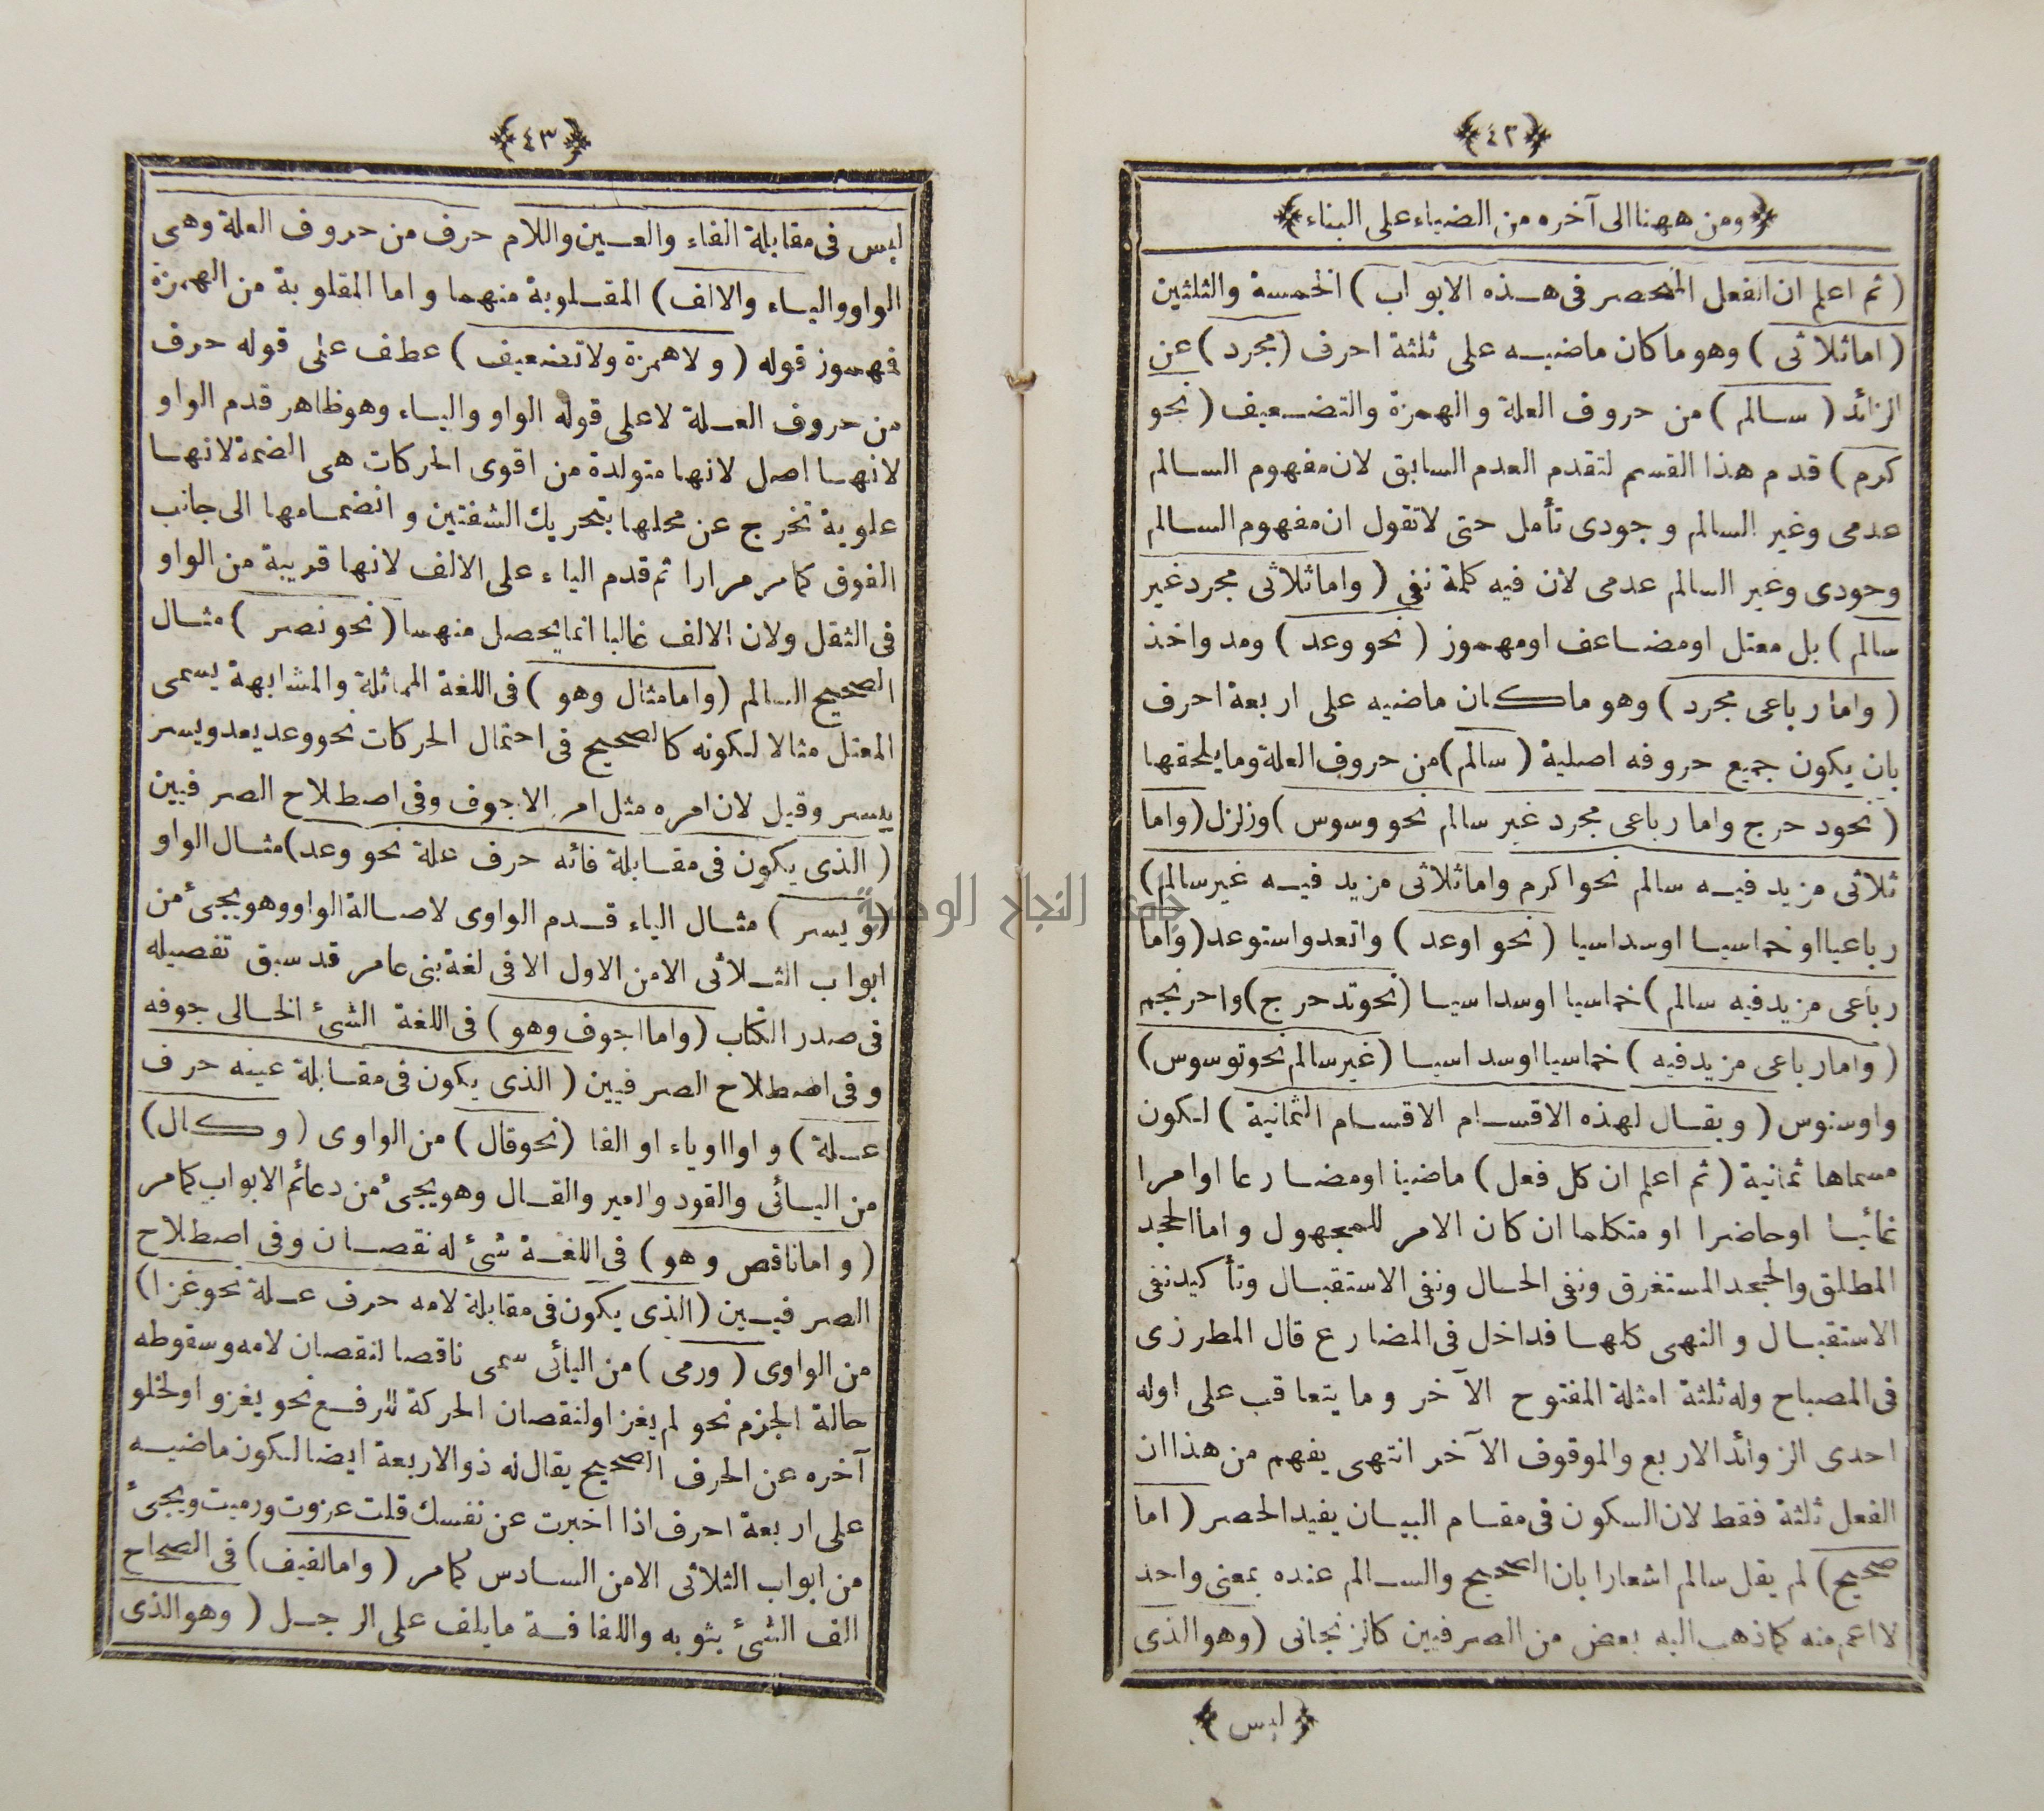 ﴿٤٢﴾
﴿ومن ههنا الى آخره من الضياء على البناء﴾
(ثم اعلم ان الفعل المنحصر فى هذه الابواب) الخمسة والثلثين
(اما ثلاثى) وهو ما كان ماضيه على ثلثة احرف (مجرد) عن
الزائد (سالم) من حروف العلة والهمزة والتضعيف (نحو
كرم) قدم هذا القسم لتقدم العدم السابق لان مفهوم السالم
عدمى وغير السالم وجودى تأمل حتى لا تقول ان مفهوم السالم
وجودى وغير السالم عدمى لان فيه كلمة نفى (واما ثلاثى مجرد غير
سالم) بل معتل او مضاعف او مهموز (نحو وعد) ومد واخذ
(واما رباعى مجرد) وهو ما كان ماضيه على اربعة احرف
بان يكون جميع حروفه اصلية (سالم) من حروف العلة وما يلحقها
(نحو دحرج واما رباعى مجرد غير سالم نحو وسوس) وزلزل (واما
ثلاثى مزيد فيه سالم نحو اكرم واما ثلاثى مزيد فيه غير سالم)
رباعيا او خماسيا او سداسيا (نحو اوعد) واتعد واستوعد (واما
رباعى مزيد فيه سالم) خماسيا او سداسيا (نحو تدحرج) واحرنجم
(واما رباعى مزيد فيه) خماسيا او سداسيا (غير سالم نحو توسوس)
واوسنوس (ويقال لهذه الاقسام الاقسام الثمانية) لكون
مسماها ثمانية (ثم اعلم ان كل فعل) ماضيا او مضارعا او امرا
غائبا او حاضرا او متكلما ان كان الامر للمجهول واما الجحد
المطلق والجحد المستغرق ونفى الحال ونفى الاستقبال وتأكيد نفى
الاستقبال والنهى كلها فداخل فى المضارع قال المطرزى
فى المصباح وله ثلثة امثلة المفتوح الآخر وما يتعاقب على اوله
احدى الزوائد الاربع والموقوف الآخر انتهى يفهم من هذا ان
الفعل ثلثة فقط لان السكون فى مقام البيان يفيد الحصر (اما
صحيح) لم يقل سالم اشعارا بان الصحيح والسالم عنده بمعنى واحد
لا اعم منه كما ذهب اليه بعض من الصرفيين كالزنجانى (وهو الذى
﴿ليس﴾
﴿٤٣﴾
ليس فى مقابلة الفاء والعين واللام حرف من حروف العلة وهى
الواو والياء والالف) المقلوبة منهما واما المقلوبة من الهمزة
فهموز قوله (ولا همزة ولا تضعيف) عطف على قوله حرف
من حروف العلة لا على قوله الواو والياء وهو ظاهر قدم الواو
لانها اصل لانها متولدة من اقوى الحركات هى الضمة لانها
علوية تخرج عن محلها بتحريك الشفتين وانضمامها الى جانب
الفوق كما مر مرارا ثم قدم الياء على الالف لانها قريبة من الواو
فى الثقل ولان الالف غالبا انما يحصل منهما (نحو نصر) مثال
الصحيح السالم (واما مثال وهو) فى اللغة المماثلة والمشابهة يسمى
المعتل مثالا لكونه كالصحيح فى احتمال الحركات نحو وعد يعد ويسر
ييسر وقيل لان امره مثل امر الاجوف وفى اصطلاح الصرفيين
(الذى يكون فى مقابلة فائه حرف علة نحو وعد) مثال الواو
(ويسر) مثال الياء قدم الواوى لاصالة الواو وهو يجئ من
ابواب الثلاثى الا من الاول الا فى لغة بنى عامر قد سبق تفصيله
فى صدر الكتاب (واما اجوف وهو) فى اللغة الشئ الخالى جوفه
وفى اصطلاح الصرفيين (الذى يكون فى مقابلة عينه حرف
علة) واوا او ياء او الفا (نحو قال) من الواوى (وكال)
من اليائى والقود والمير والقال وهو يجئ من دعائم الابواب كما مر
(واما ناقص وهو) فى اللغة شئ له نقصان وفى اصطلاح
الصرفيين (الذى يكون فى مقابلة لامه حرف علة نحو غزا)
من الواوى (ورمى) من اليائى سمى ناقصا لنقصان لامه وسقوطه
حالة الجزم نحو لم يغز او لنقصان الحركة للرفع نحو يغزو او لخلو
آخره عن الحرف الصحيح يقال له ذو الاربعة ايضا لكون ماضيه
على اربعة احرف اذا اخبرت عن نفسك قلت عزوت ورميت ويجئ
من ابواب الثلاثى الا من السادس كما مر (واما لفيف) فى الصحاح
الف الشئ بثوبه واللفافة ما يلف على الرجل (وهو الذى
جامعة النجاح الوطنية